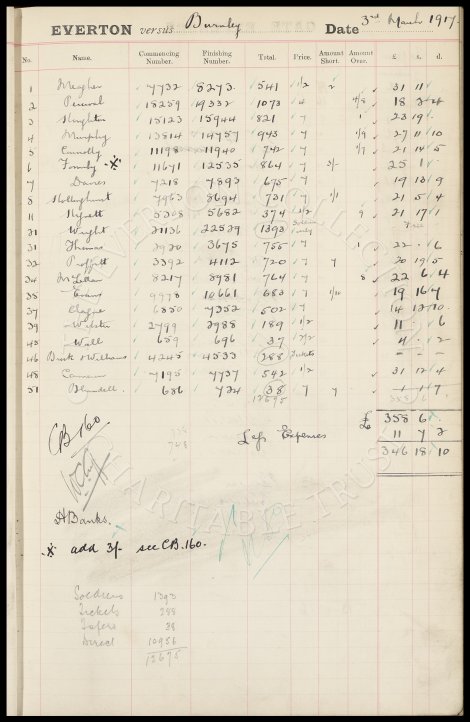 EVERTON versus Burnley Date 3rd March 1917.
No. Name. Commencing Number. Finishing Number. Total. Price. Amount Short. Amount Over. £ s. d.
1 Meagher 7732 8273 541 1/2 2 31 11
2 Percival 18259 19332 1073 4 18 3 4
3 15123 15944 821 7 23 19
4 Murphy 13814 14757 943 7 27 11 10
5 Connolly 11198 11940 742 7 21 14 5
6 Formby * 11671 12535 864 7 3/- 25 1
7 Davies 7218 7893 675 7 19 13 9
8 Hollinghurst 7963 8694 731 7 1/1 21 5 4
11 Hyett 5308 5682 374 1/2 9 21 17 1
21 Wright 21136 22529 1393 Soldiers only Free
31 Thomas 2920 3675 755 7 22 6
32 Proffitt 3392 4112 720 7 7 20 19 5
34 McLellan 8217 8981 764 7 8 22 6 4
35 Evans 9978 10661 683 7 1/10 19 16 7
37 Clague 6850 7352 502 7 14 12 10
39 Webster 2799 2988 189 1/2 11 6
45 Wall 659 696 37 2/2 4 2
46 Bush & Williams 4245 4533 288 Tickets - - -
48 Cameron 7195 7737 542 1/2 31 12 4
51 Blundell 686 724 38 7 7 1 1 7
12695 358 6
£ 358 6
CB 160
Less Expenses 11 7 2
346 18 10
H Banks.
* add 3/- see CB.160.
Soldiers 1393
Tickets 288
38
Direct 10956
12675
EVERTON COLLECTION CHARITABLE TRUST